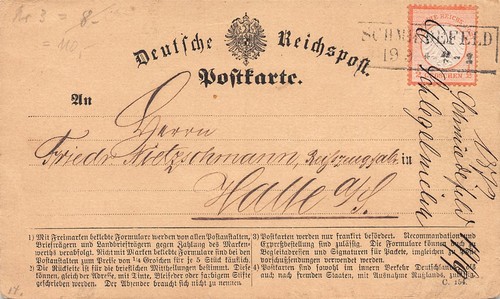 No 3 = 8.-
= 110,-
Deutsche Reichspost.
Postkarte.
SCHMIEDEFELD
An
Herrn
Friedr. Nietzschmann, in
Halle a/S.
Schmiedefeld
Schlegelmilch
1) Mit Freimarken beklebte Formulare werden von allen Postanstalten,
Briefträgern und Landbriefträgern gegen Zahlung des Marken-
werths verabfolgt. Nicht mit Marken beklebte Formulare sind bei den
Postanstalten zum Preise von ¼ Groschen für 5 Stück käuflich.
2) Die Rückseite ist für die brieflichen Mittheilungen bestimmt. Diese
können, gleich der Adresse, mit Tinte, Bleifeder oder farbigem Stifte
geschrieben werden. Der Absender braucht sich nicht zu nennen.
3) Postkarten werden nur frankirt befördert. Recommandation und
Expreßbestellung sind zulässig. Die Formulare können auch zu
Begleitadressen und Signaturen für Packete, imgleichen
4) Postkarten sind sowohl im innern Verkehr Deutschlands
auch nach den fremden Staaten, mit Ausnahme Rußlands,
C. 154.